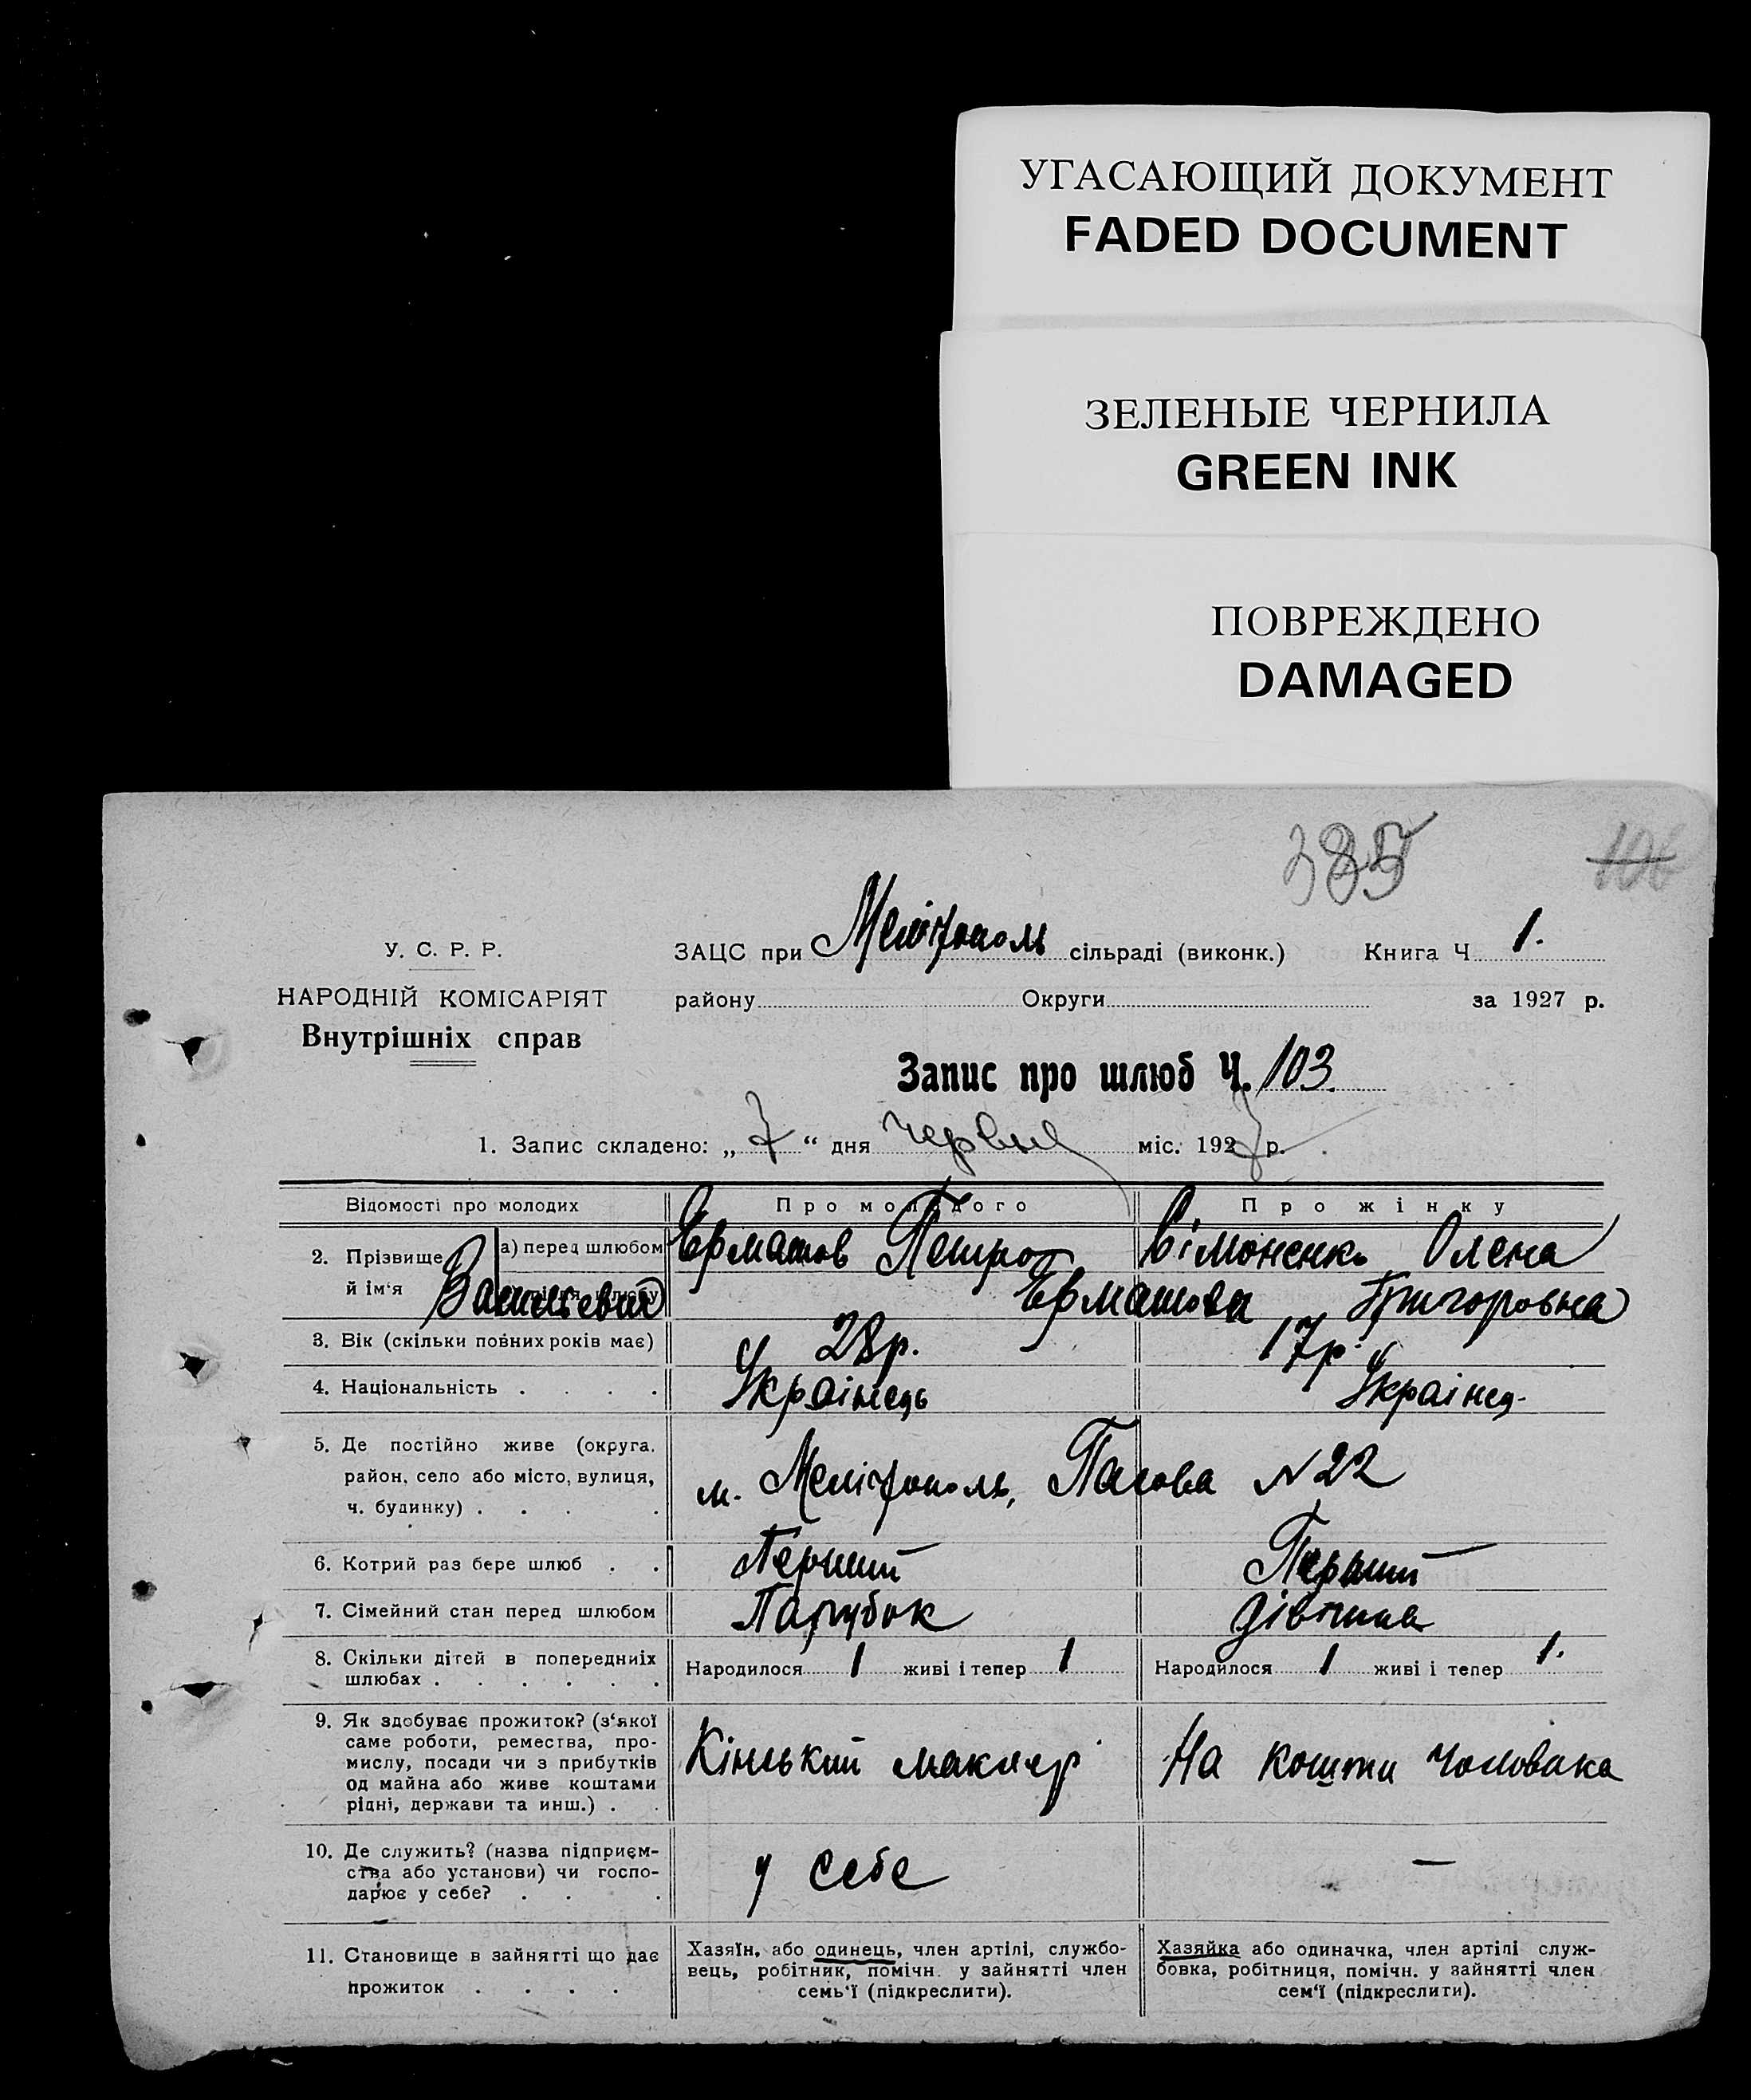 УГАСАЮЩИЙ ДОКУМЕНТ
FADED DOCUMENT
ЗЕЛЕНЫЕ ЧЕРНИЛА
GREEN INK
ПОВРЕЖДЕНО
DAMAGED
385
106
У. С. Р. Р.
НАРОДНІЙ КОМІСАРІЯТ
Внутрішніх справ
ЗАЦС при Мелітополь сільраді (виконк.) Книга Ч 1.
району Округи за 1927 р.
Запис про шлюб Ч. 103.
1. Запис складено: „ 7 “ дня червня міс. 1927 р.
Відомості про молодих Про молодого Про жінку
2. Прізвище й ім'я
а) перед шлюбом Єрмашов Петро Сімоненко Олена
Васильевич Єрмашова Григоровна
3. Вік (скільки повних років має) 28р. 17р.
4. Національність . . . . Українець Українц-
5. Де постійно живе (округа,
район, село або місто, вулиця,
ч. будинку) . . . .
м. Мелітополь, № 22
6. Котрий раз бере шлюб . . Перший Перший
7. Сімейний стан перед шлюбом Парубок дівчина
8. Скільки дітей в попередниіх
шлюбах . . . . . .
Народилося 1 живі і тепер 1 Народилося 1 живі і тепер 1.
9. Як здобуває прожиток? (з'якої
саме роботи, ремества, про-
мислу, посади чи з прибутків
од майна або живе коштами
рідні, держави та инш.) . .
Кінський макляр На кошти чоловика
10. Де служить? (назва підприєм-
ства або установи) чи госпо-
дарює у себе? . . .
у себе —
11. Становище в зайнятті що дає
прожиток . . . .
Хазяїн, або одинець, член артілі, службо-
вець, робітник, помічн. у зайнятті член
семь'ї (підкреслити).
Хазяйка або одиначка, член артілі служ-
бовка, робітниця, помічн. у зайнятті член
сем'ї (підкреслити).